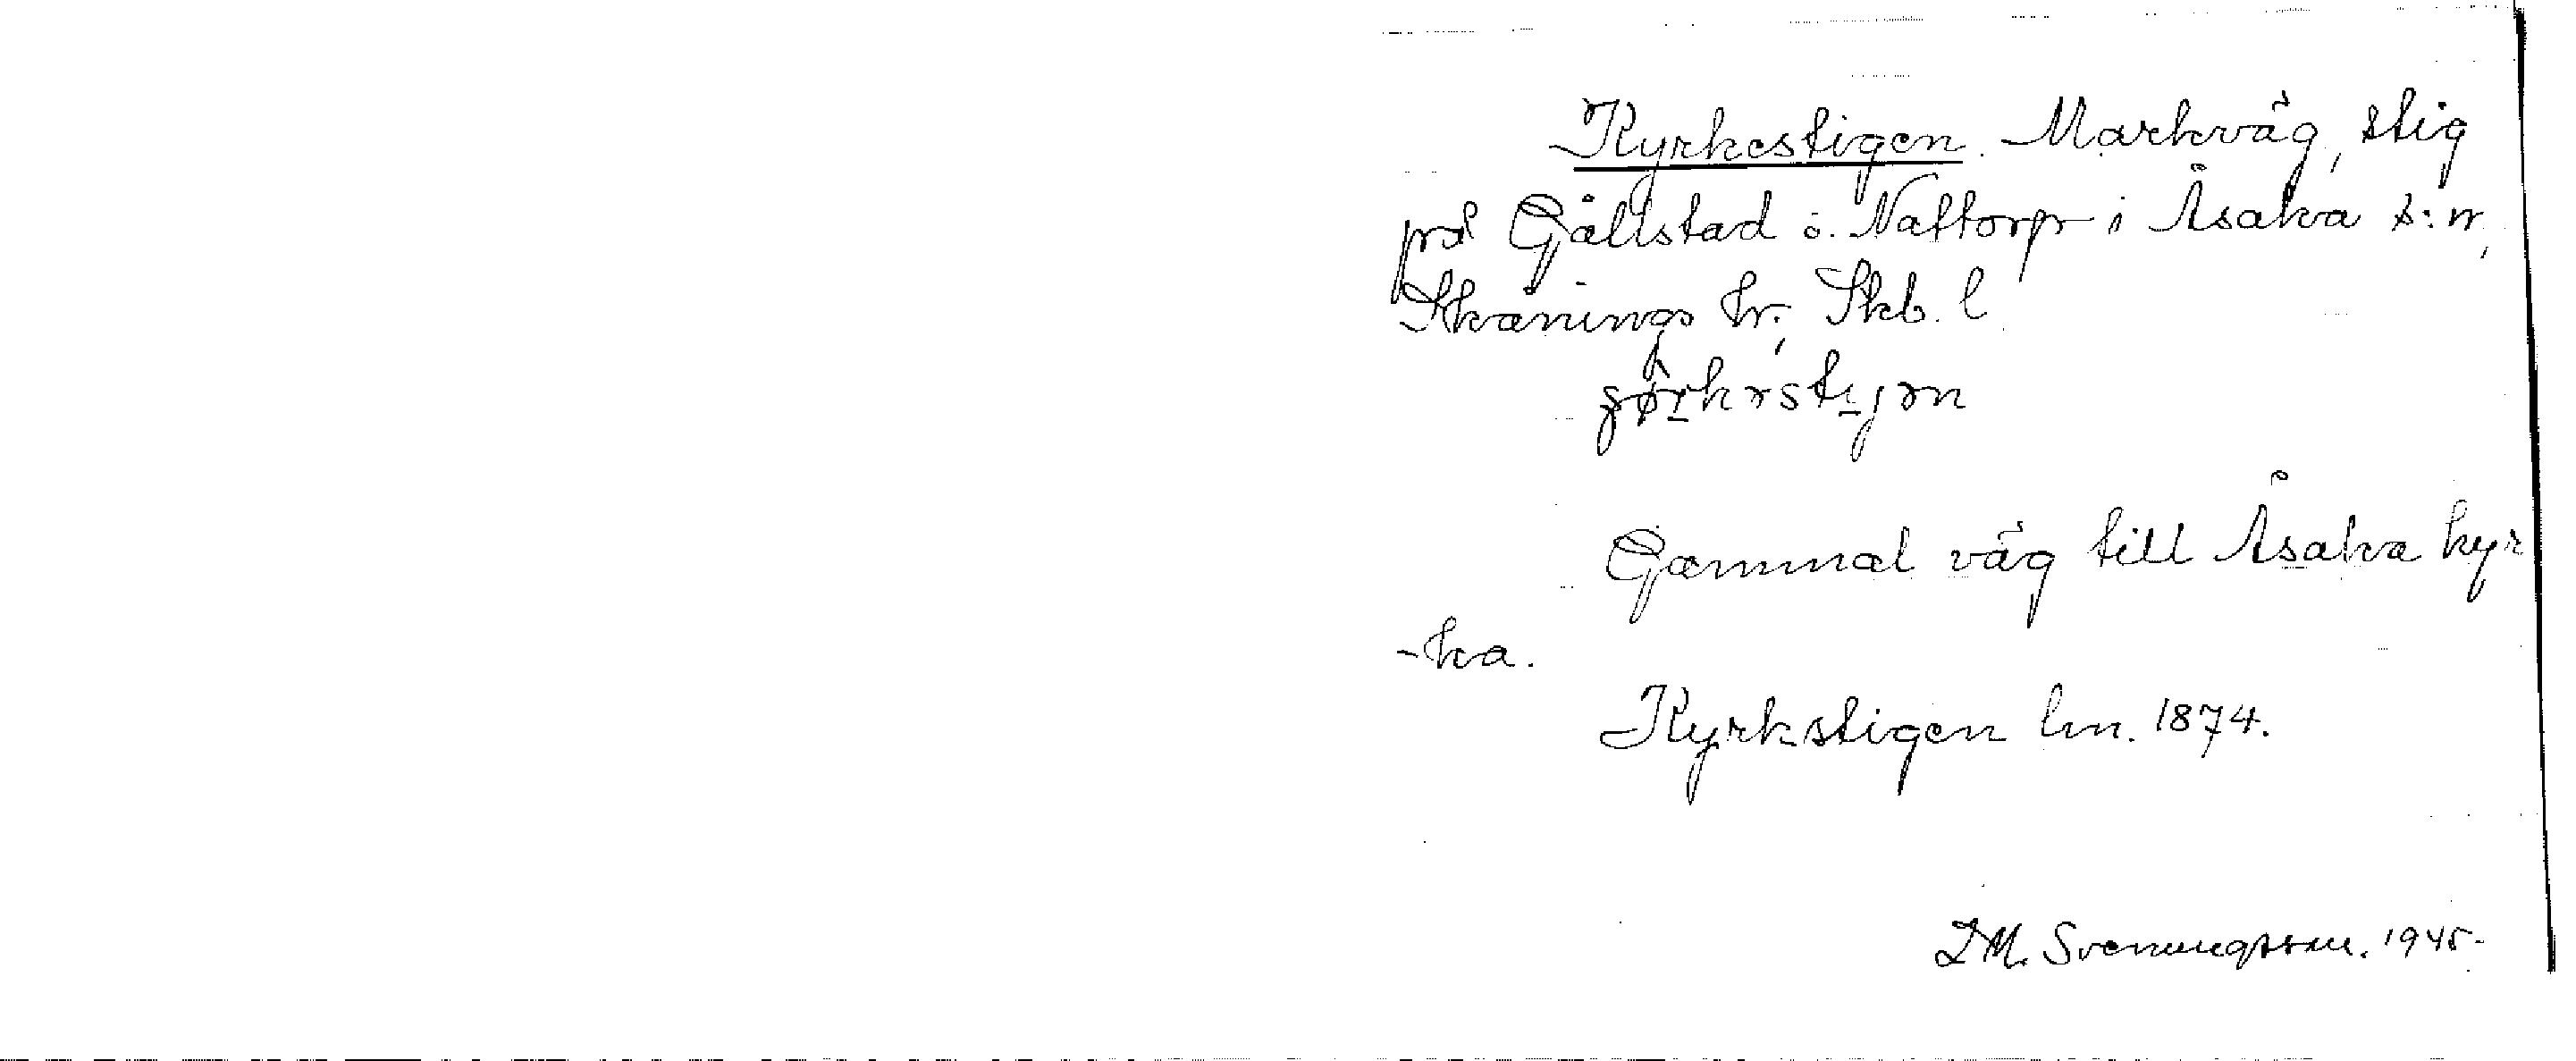 Kyrkestigen. Markväg, stig
på Gällstad o. Nattorp i Åsaka s:n,
Skånings hr, Skb. l
Gammal väg till Åsaka kyr
-ka.
Kyrkstigen lm. 1874.
D.M. Svenungsson. 1945.